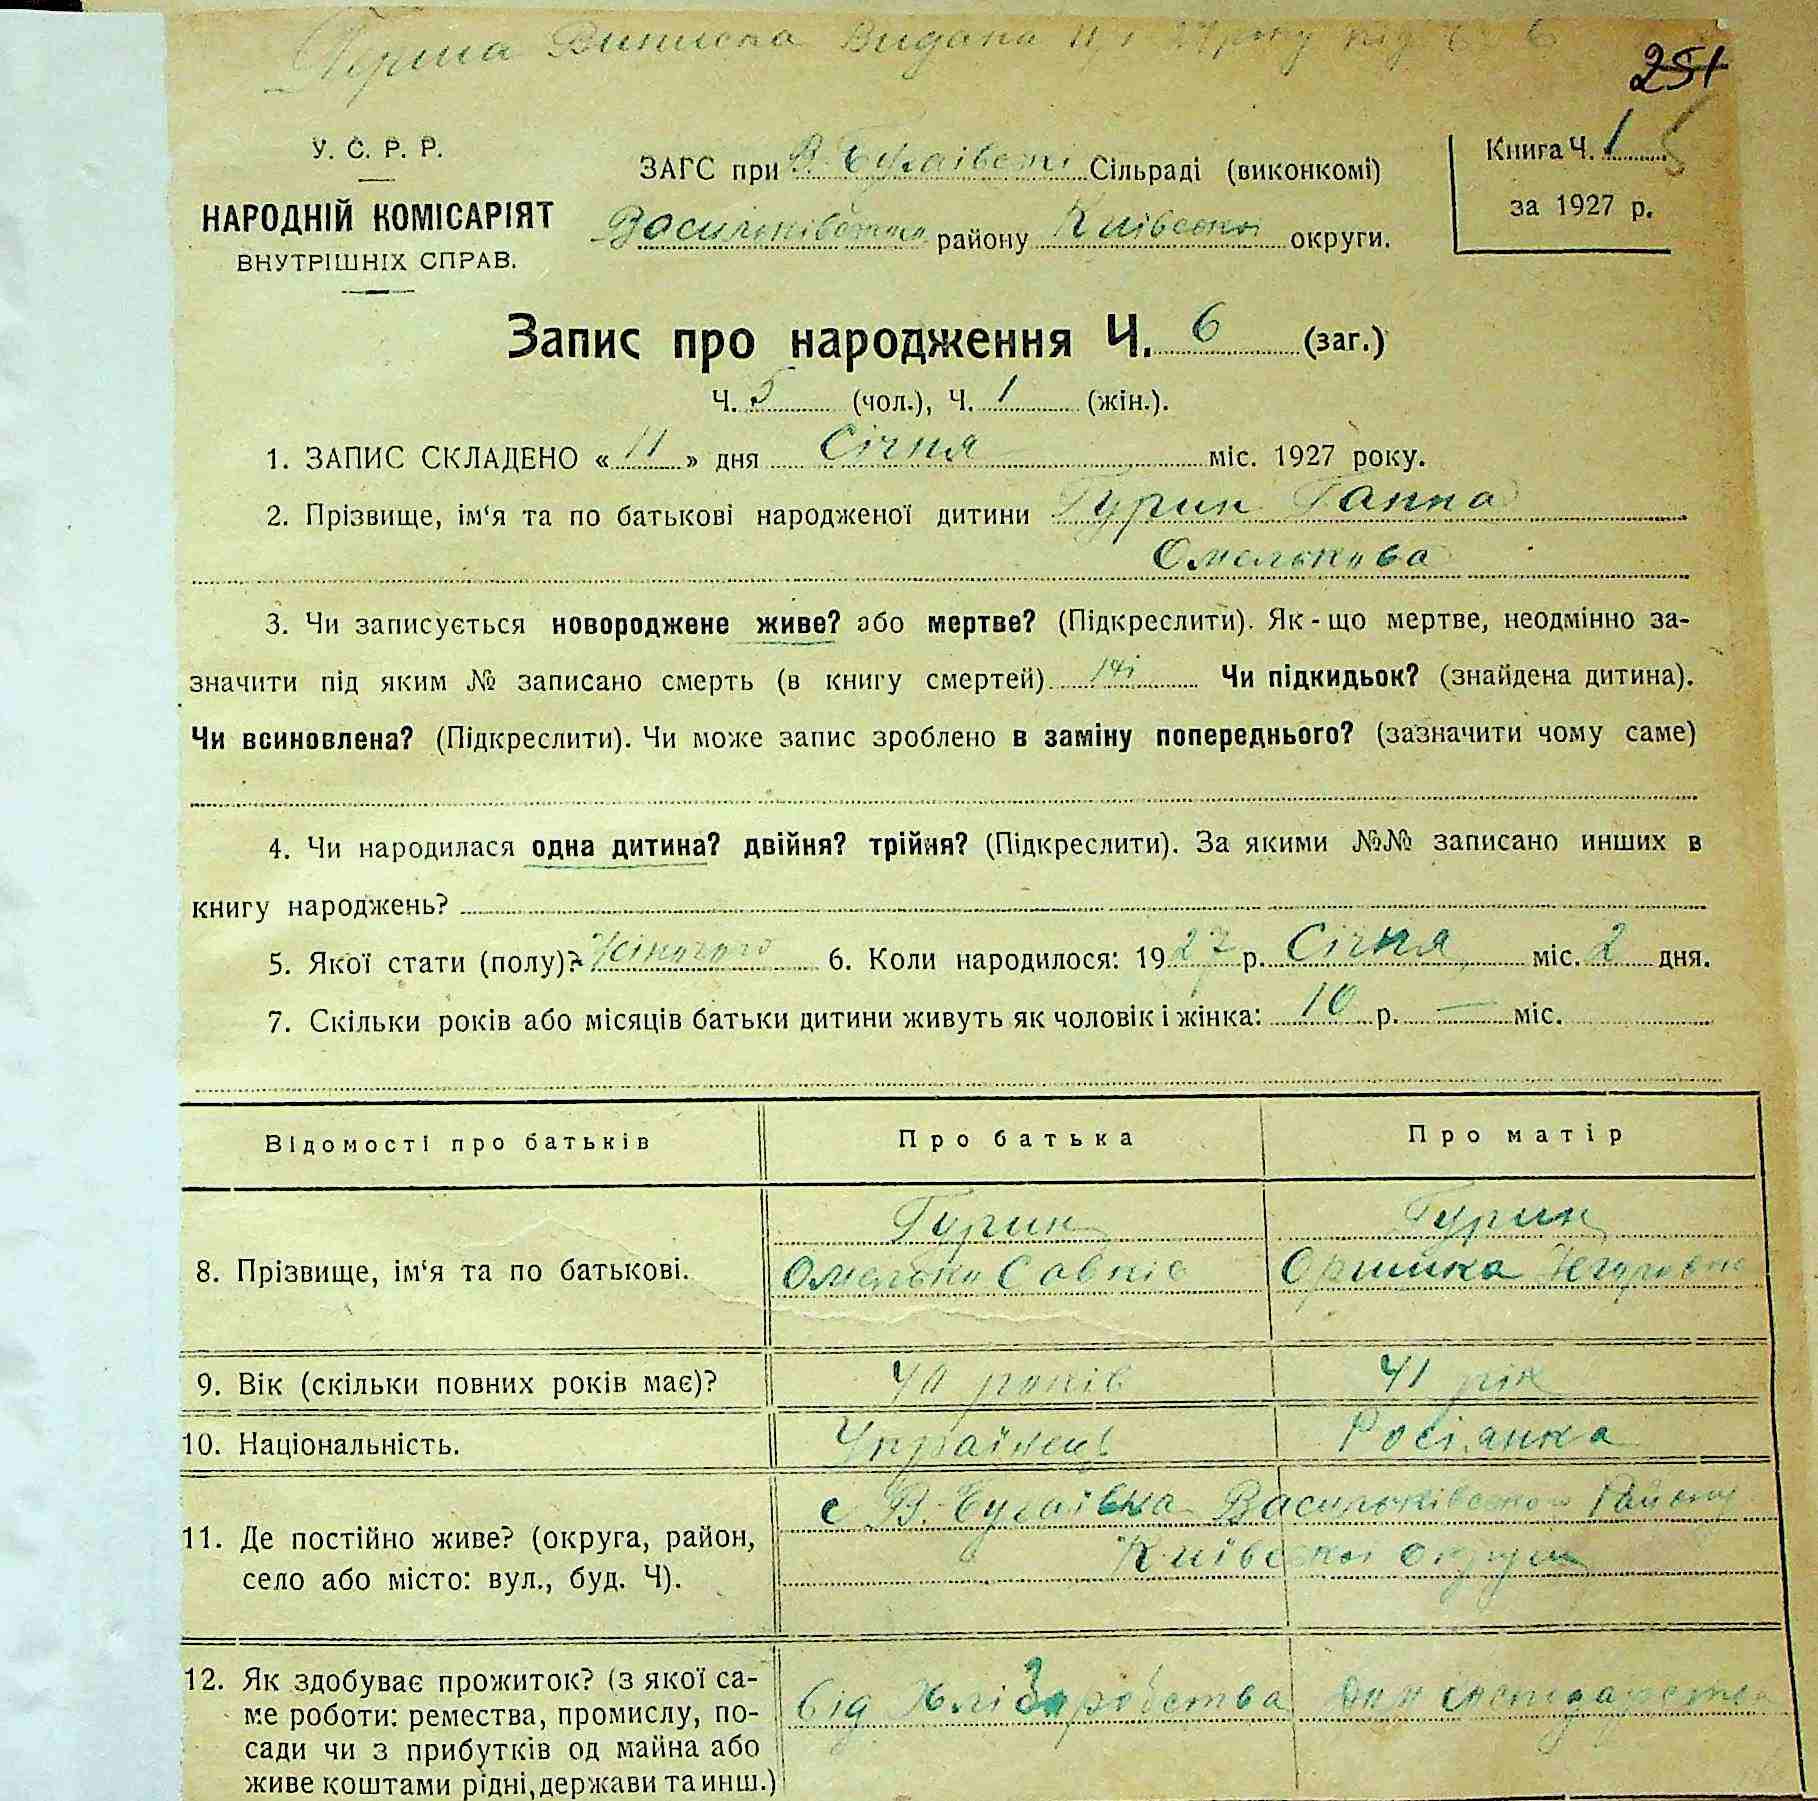 Перша Виписка Видана 11/I 27 року під Ч 6
251
У. С. Р. Р.
НАРОДНІЙ КОМІСАРІЯТ
ВНУТРІШНІХ СПРАВ.
ЗАГС при В. Бугаївські Сільраді (виконкомі)
Васильківського району Київської округи.
Книга Ч. 1
за 1927 р.
Запис про народження Ч. 6 (заг.)
Ч. 5 (чол.), Ч. 1 (жін.).
1. ЗАПИС СКЛАДЕНО « 11 » дня Січня міс. 1927 року.
2. Прізвище, ім‘я та по батькові народженої дитини Гурин Ганна
Омелькова
3. Чи записується новороджене живе? або мертве? (Підкреслити). Як-що мертве, неодмінно за-
значити під яким № записано смерть (в книгу смертей) Чи підкидьок? (знайдена дитина).
Чи всиновлена? (Підкреслити). Чи може запис зроблено в заміну попереднього? (зазначити чому саме)
4. Чи народилася одна дитина? двійня? трійня? (Підкреслити). За якими №№ записано инших в
книгу народжень?
5. Якої стати (полу)? Жіночого 6. Коли народилося: 1927 р. Січня міс. 2 дня.
7. Скільки років або місяців батьки дитини живуть як чоловік і жінка: 10 р. — міс.
Відомості про батьків Про батька Про матір
Гурин Гурин
8. Прізвище, ім‘я та по батькові. Омелько Савків Оришка Ягоровна
9. Вік (скільки повних років має)? 40 років 41 рік
10. Національність. Українець Росіянка
с В. Бугаївка Васильківського Району
11. Де постійно живе? (округа, район, Київської округи
село або місто: вул., буд. Ч).
12. Як здобуває прожиток? (з якої са- від Хліборобства Дом господарства
ме роботи: ремества, промислу, по-
сади чи з прибутків од майна або
живе коштами рідні, держави та инш.)